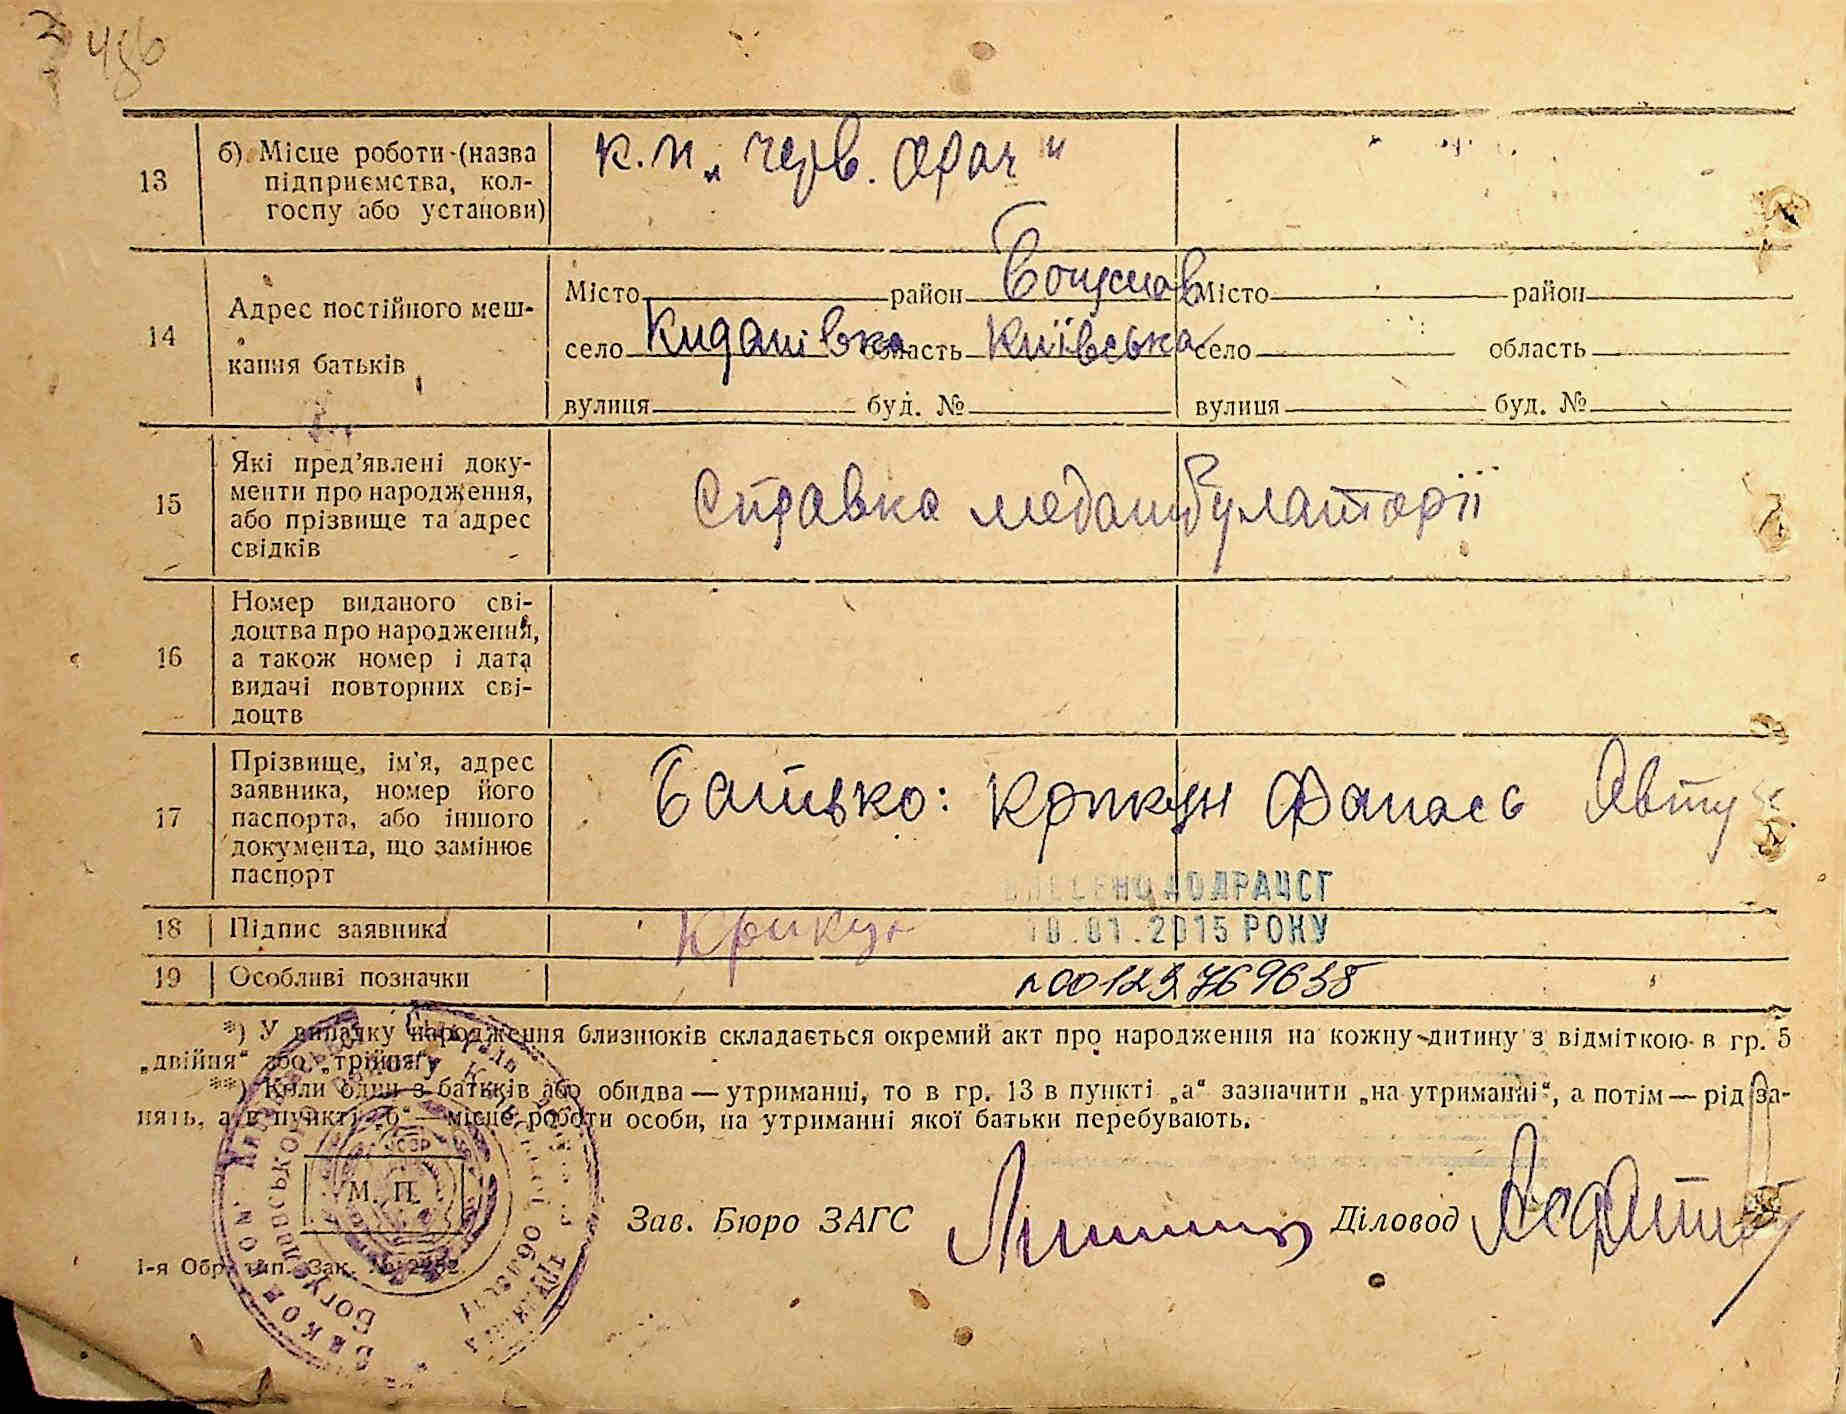 13
б) Місце роботи (назва
підприємства, кол-
госпу або установи)
к.п. „ черв. Орач "
14
Адрес постійного меш-
кання батьків
Місто район Богуслав Місто район
село Киданівка область Київська село область
вулиця буд. № вулиця буд. №
15
Які пред’явлені доку-
менти про народження,
або прізвище та адрес
свідків
Справка медамбулаторії
16
Номер виданого сві-
доцтва про народження,
а також номер і дата
видачі повторних сві-
доцтв
17
Прізвище, ім’я, адрес
заявника, номер його
паспорта, або іншого
документа, що замінює
паспорт
Батько: Крикун Фанась Явту
ВНЕСЕНО ДО ДРАЦСГ
18 Підпис заявника Крикун
10.01.2015 РОКУ
19 Особливі позначки 00123769638
*) У випадку народження близнюків складається окремий акт про народження на кожну дитину з відміткою в гр. 5
„двійня“ або „трійня“.
**) Коли один з батьків або обидва — утриманці, то в гр. 13 в пункті „а“ зазначити „на утриманні“, а потім — рід за-
нять, а в пункті „б“ — місце роботи особи, на утриманні якої батьки перебувають.
М. П.
Зав. Бюро ЗАГС Діловод
1-я Обр. тип. Зак. №